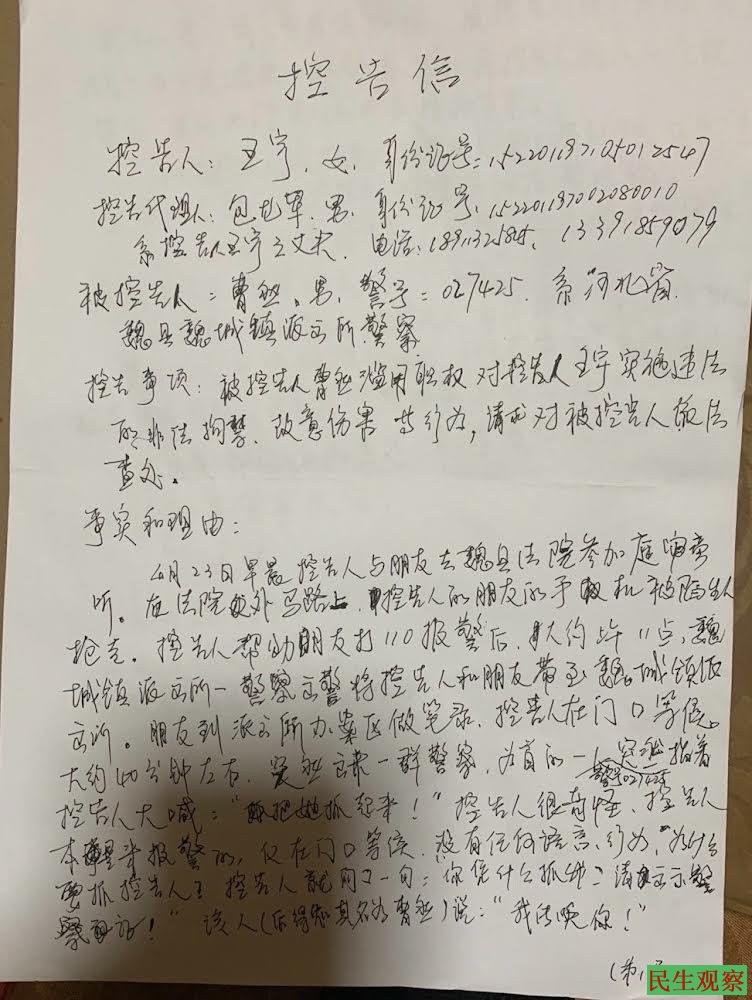 控告信
控告人：王宇、女、身份证号：152201197105012547
控告代理人：包龙军、男、身份证号：152201197002080010
系控告人王宇之丈夫、电话：1891132 、13391859079
被控告人：曹然、男、警号：027425、系河北省
魏县魏城镇派出所警察
控告事项：被控告人曹然滥用职权对控告人王宇实施违法
的非法拘禁、故意伤害等行为，请求对被控告人依法
查处。
事实和理由：
4月23日早晨控告人与朋友去魏县法院参加庭审旁
听。在法院外马路上，控告人的朋友的手机被陌生人
抢走。控告人帮助朋友打110报警后，大约上午11点，魏
城镇派出所一警察出警将控告人和朋友带至魏城镇派
出所。朋友到派出所办案区做笔录，控告人在门口等候。
大约40分钟左右，突然出来一群警察，为首的一人突然指着
警号027425
控告人大喊：“把她抓起来！”控告人很奇怪，控告人
本是来报警的，仅在门口等候，没有任何语言、行为，为什么
要抓控告人？控告人就问了一句：“你凭什么抓我？请出示警
察证！”该人（后得知其名为曹然）说：“我传唤你！”
（第1
民生观察